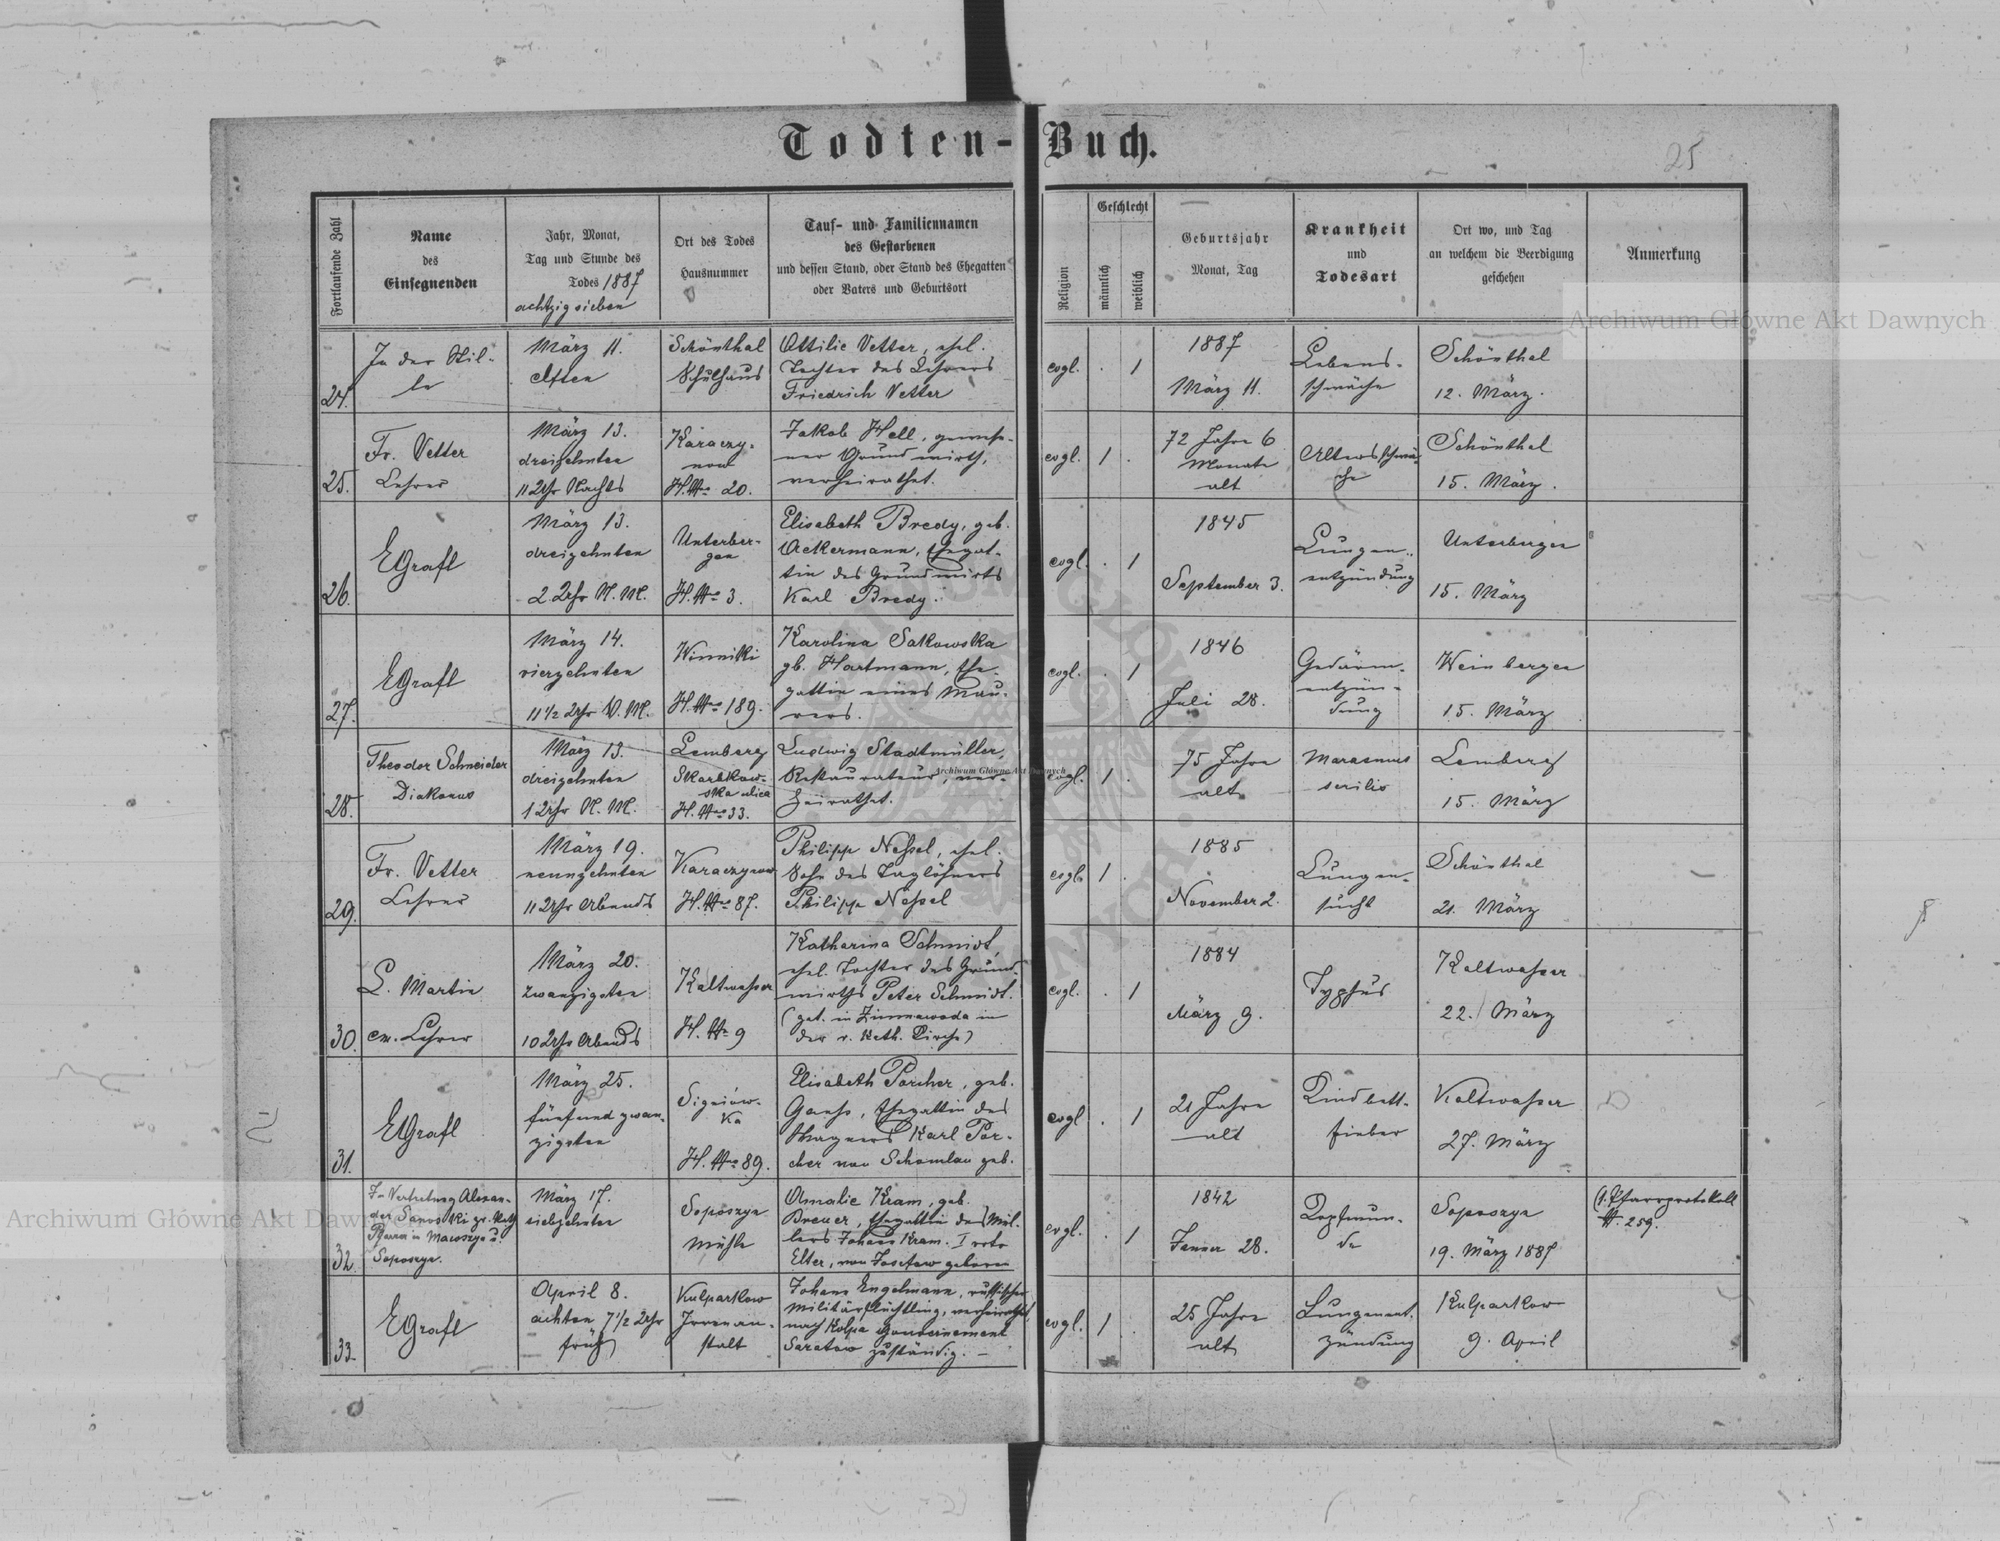 Todten-Buch.
25
Fortlaufende Zahl
Name
des
Einsegnenden
Jahr, Monat,
Tag und Stunde des
Todes 1887
achtzigsieben
Ort des Todes
Hausnummer
Tauf- und Familiennamen
des Gestorbenen
und dessen Stand, oder Stand des Ehegatten
oder Vaters und Geburtsort
Religion
Geschlecht
männlich
weiblich
Geburtsjahr
Monat, Tag
Krankheit
und
Todesart
Ort wo, und Tag
an welchem die Beerdigung
geschehen
Anmerkung
24.
In der Stil-
le
März 11.
elften
Schönthal
Schulhaus
Ottilie Vetter, ehel.
Tochter des Lehrers
Friedrich Vetter
evgl. . 1
1887
März 11.
Lebens-
schwäche
Schönthal
12. März.
25.
Fr. Vetter
Lehrer
März 13.
dreizehnten
11 Uhr Nachts
Karaczy-
now
H. No 20.
Jakob Hell, gewese-
ner Grundwirth,
verheirathet.
evgl. 1 .
72 Jahre 6
Monate
alt
Altersschwä-
che
Schönthal
15. März.
26.
EGrafl
März 13.
dreizehnten
2 Uhr N. M.
Unterber-
gen
H. No 3.
Elisabeth Bredy, geb.
Ackermann, Ehegat-
tin des Grundwirts
Karl Bredy.
evgl. . 1
1845
September 3.
Lungen-
entzündung
Unterbergen
15. März
27.
EGrafl
März 14.
vierzehnten
11 1/2 Uhr V. M.
Winniki
H. No 189.
Karolina Sakowska
gb. Hartmann, Ehe-
gattin eines Mau-
rers.
evgl. . 1
1846
Juli 28.
Gedärm-
entzün-
dung
Weinbergen
15. März
28.
Theodor Schneider
Diakonus
März 13.
dreizehnten
1 Uhr N. M.
Lemberg
Skarbkow-
ska ulica
H. No 33.
Ludwig Stadtmüller,
Restaurateur, ver-
heirathet.
evgl. 1 .
75 Jahre
alt
Marasmus
senilis
Lemberg
15. März
29.
Fr. Vetter
Lehrer
März 19.
neunzehnten
11 Uhr Abends
Karaczynow
H. No 87.
Philipp Nessel, ehel.
Sohn des Taglöhners
Philipp Nessel
evgl. 1 .
1885
November 2.
Lungen-
sucht
Schönthal
21. März
30.
L. Martin
em. Lehrer
März 20.
zwanzigsten
10 Uhr Abends
Kaltwasser
H. No 9
Katharina Schmidt,
ehel. Tochter des Grund-
wirths Peter Schmidt.
(get. in Zimnawoda in
der r. kath. Kirche)
evgl. . 1
1884
März 9.
Typhus
Kaltwasser
22. März
31.
EGrafl
März 25.
fünfundzwan-
zigsten
Signiow-
ka
H. No 89.
Elisabeth Porcher, geb.
Ehegattin des
Wagners Karl Por-
cher von geb.
evgl . 1
21 Jahre
alt
Kindbett-
fieber
Kaltwasser
27. März
32.
In Vertretung Alexan-
der Sanocki gr. kath
Pfarrer in
Soposzyn.
März 17.
siebzehnten
Soposzyn
Mühle
Amalie Kram, geb.
Breuer, Ehegattin des Mül-
lers Johann Kram. I voto
Elter, von geboren
evgl. . 1
1842
Januar 28.
Kopfwun-
de
Soposzyn
19. März 1887
(s. Pfarrprotokoll
No 259.
33.
EGrafl
April 8.
achten 7 1/2 Uhr
früh
Kulparkow
Irrenan-
stalt
Johann Engelmann, russischer
Militärflüchtling, verheirathet,
nach Kolpa Gouvernement
Saratow zuständig. —
evgl. 1 .
25 Jahre
alt
Lungenent-
zündung
Kulparkow
9. April
Archiwum Główne Akt Dawnych
Archiwum Główne Akt Dawnych
Archiwum Główne Akt Dawnych